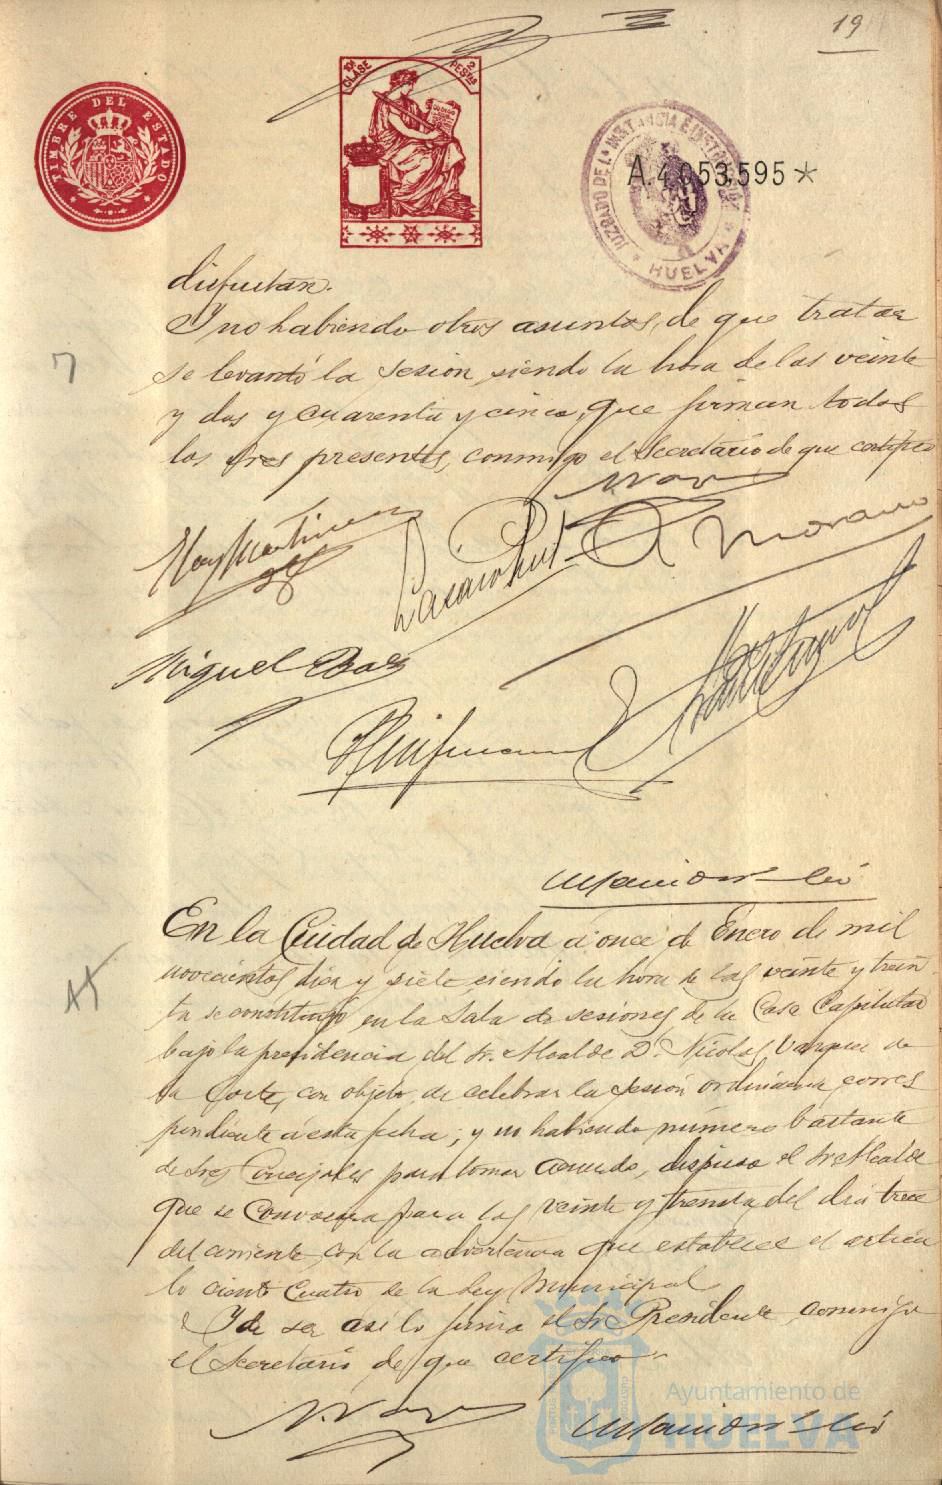 19
TIMBRE DEL ESTADO
10ª CLASE 2 PESTAS
JUZGADO DE 1ª INSTANCIA E INSTRUCCION
HUELVA
A.4.053,595*
disfrutan.
Y no habiendo otros asuntos, de que tratar
se levantó la sesión, siendo la hora de las veinte
y dos y cuarenta y cinco, que firman todos
los Sres presentes, conmigo el Secretario de que certifico
7
A. Moreno
Miguel Baez
En la Ciudad de Huelva a once de Enero de mil
novecientos diez y siete, siendo la hora de las veinte y trein
ta se constituyó en la Sala de sesiones de la Casa Capitular
bajo la presidencia del Sr. Alcalde D. Nicolas Vazquez de
la Corte, con objeto de celebrar la sesión ordinaria corres
pondiente a esta fecha; y no habiendo número bastante
de Sres Concejales para tomar acuerdo, dispuso el Sr Alcalde
que se convocara para las veinte y treinta del dia trece
del corriente con la advertencia que establece el articu
lo ciento cuatro de la Ley Municipal
Y de ser así lo firma el Sr Presidente, conmigo
el Secretario de que certifico.
Ayuntamiento de
HUELVA